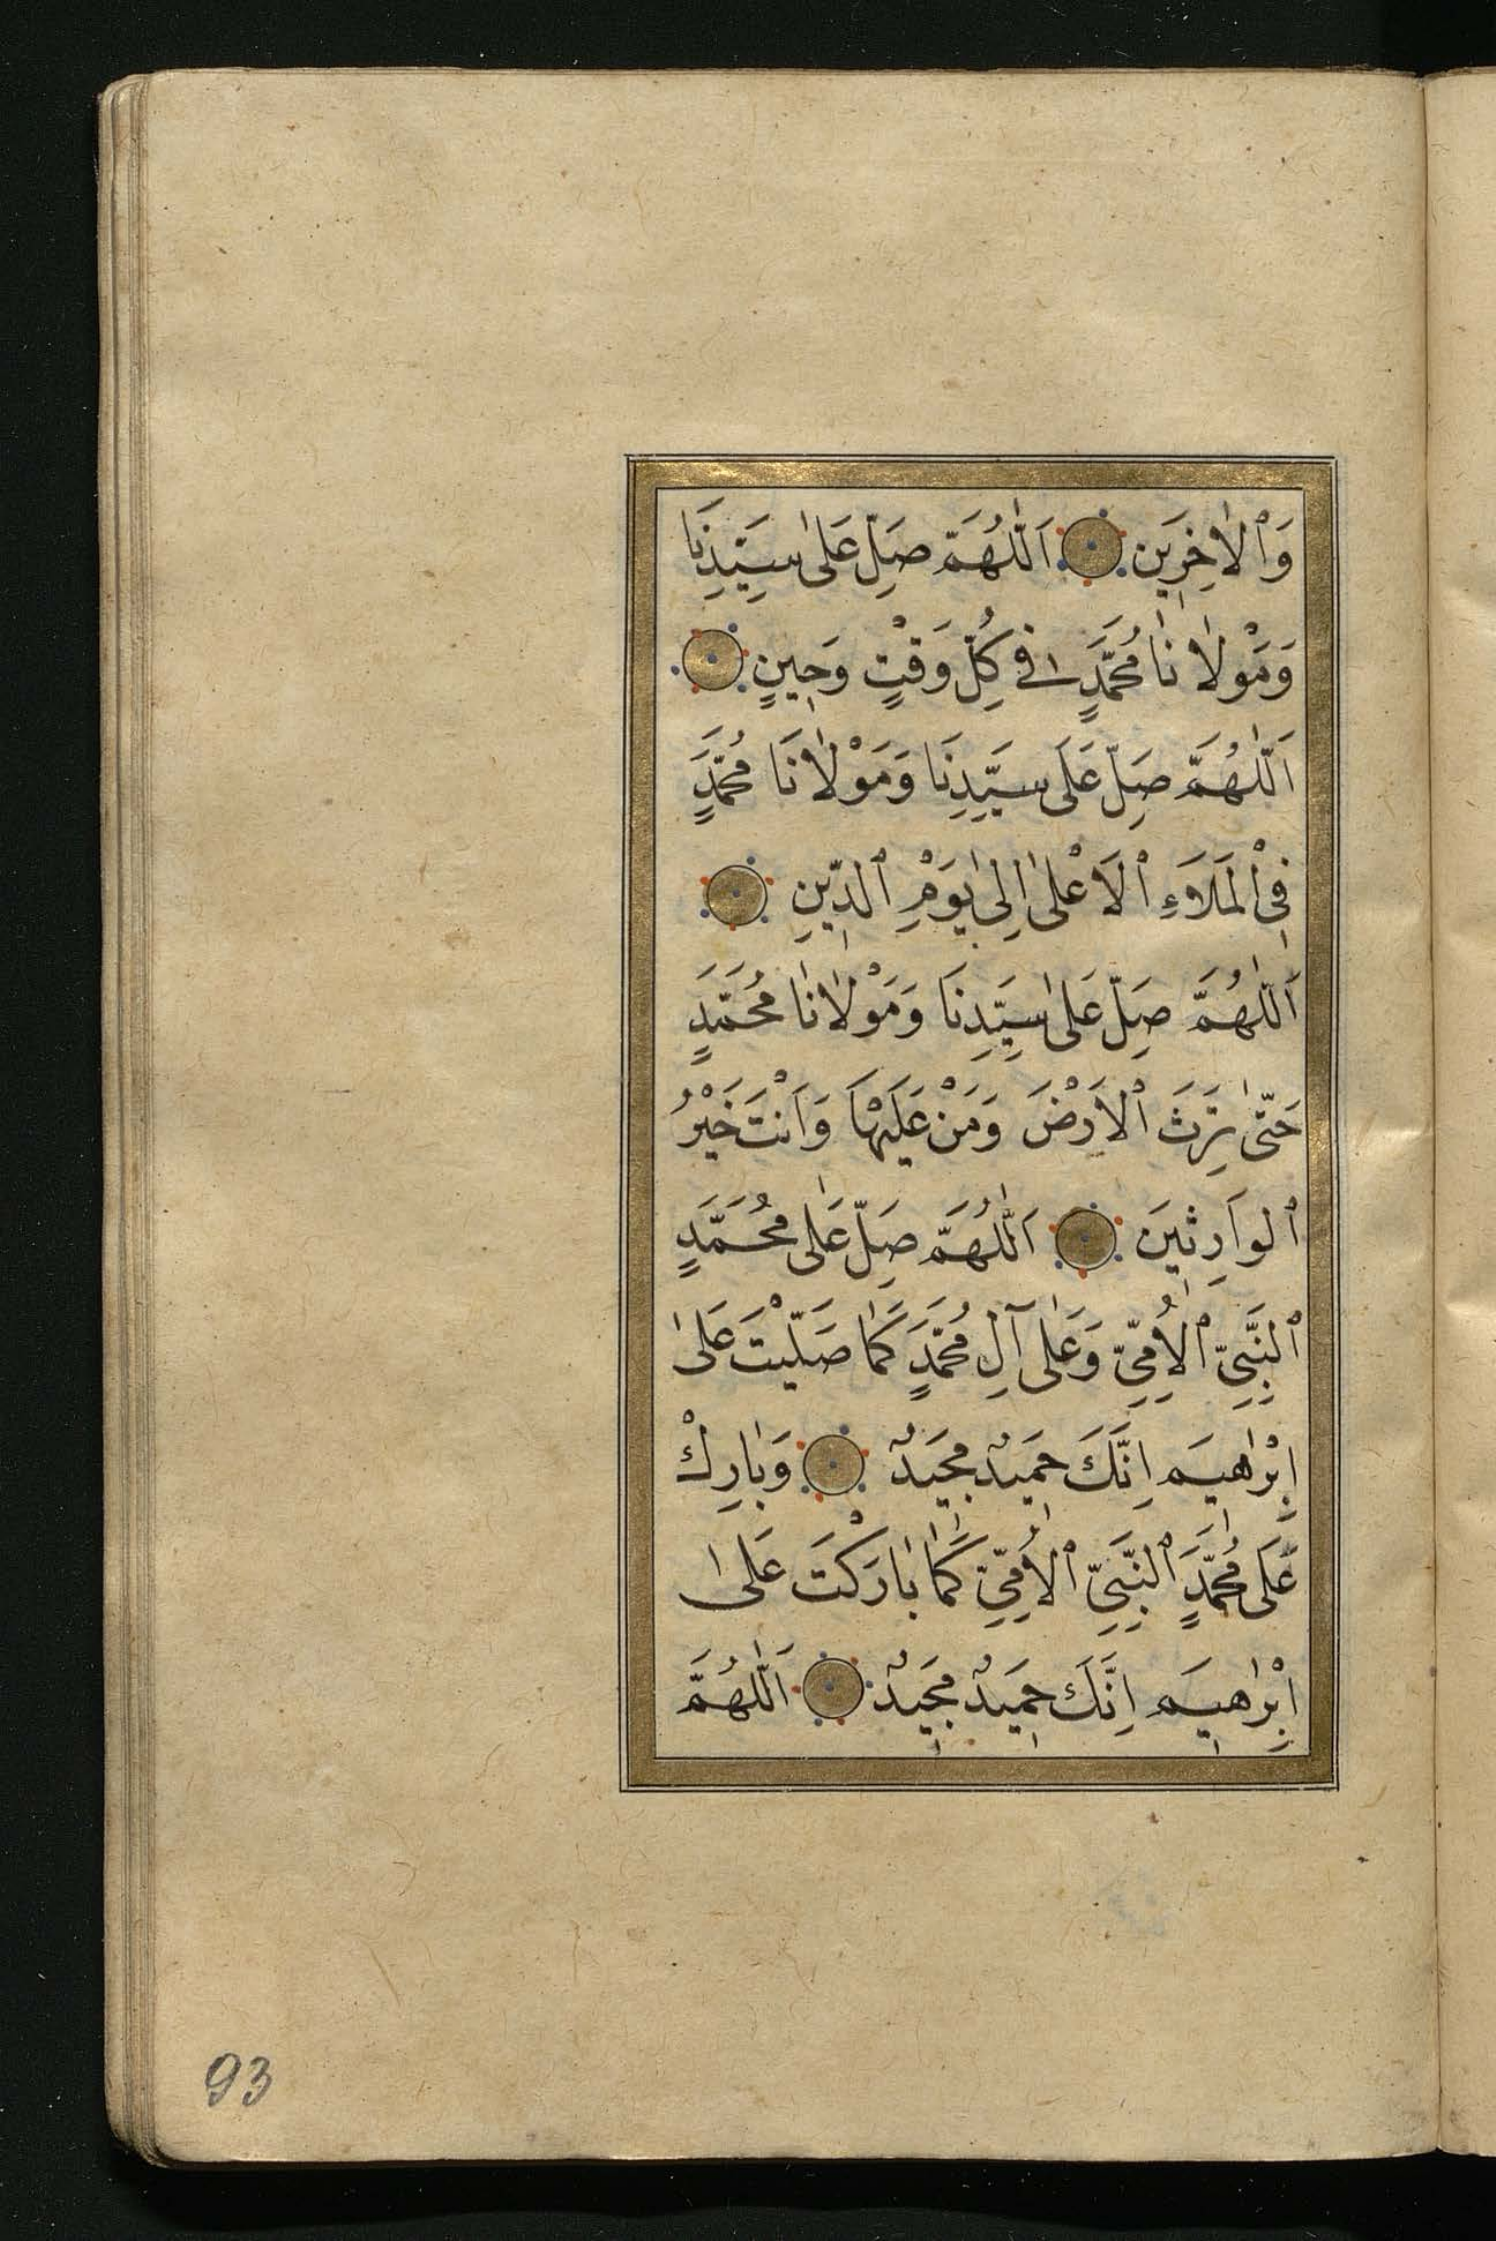 وَٱلْاٰخِرِيَن اَللّٰهُمَّ صَلِّ عَلىٰ سَيِّدِنَا
وَمَوْلٰانٰا مُحَمَّدٍ فِي كُلِّ وَقْتٍ وَحِينٍ
اَللّٰهُمَّ صَلِّ عَلَى سَيِّدِنَا وَمَوْلٰانَا مُحَمَّدٍ
فِي ٱلْمَلَاءِ ٱلْاَعْلىٰ اِلىٰ يَوْمِ ٱلدِّينِ
اَللّٰهُمَّ صَلِّ عَلىٰ سَيِّدِنَا وَمَوْلٰانٰا مُحَمَّدٍ
حَتّىٰ تَرِثَ ٱلْاَرْضَ وَمَنْ عَلَيْهَا وَاَنْتَ خَيْرُ
ٱلوَارِثِيَن اَللّٰهُمَّ صَلِّ عَلٰى مُحَمَّدٍ
ٱلنَّبِيِّ ٱلْاُمِّيِّ وَعَلٰى آلِ مُحَمَّدٍ كَمٰا صَلَّيْتَ عَلىٰ
اِبْرٰاهِيَم اِنَّكَ حَمِيدٌ مَجِيدٌ وَبٰارِكْ
عَلَى مُحَمَّدٍ ٱلنَّبِيِّ ٱلْاُمِّيِّ كَمٰا بٰارَكْتَ عَلىٰ
اِبْرٰاهِيَم اِنَّكَ حَمِيدٌ مَجِيدٌ اَللّٰهُمَّ
93